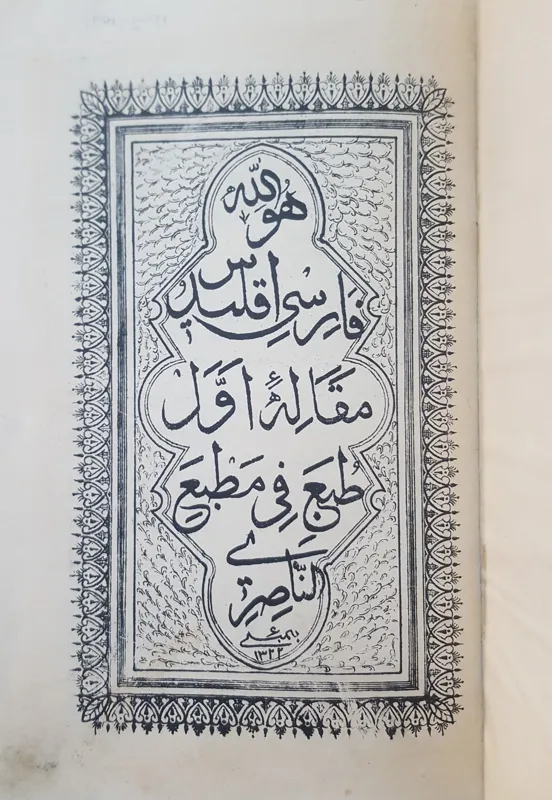 هو الله
فارسی اقلیدس
مَقَالهٔ اوَّل
طُبعَ فِی مَطبَعِ
النَّاصِرِی
بمبئی
۱۳۲۲